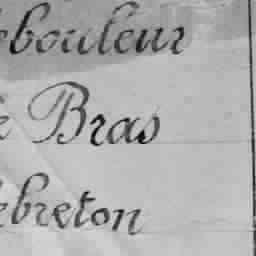 ebouleur
e Bras
ebreton